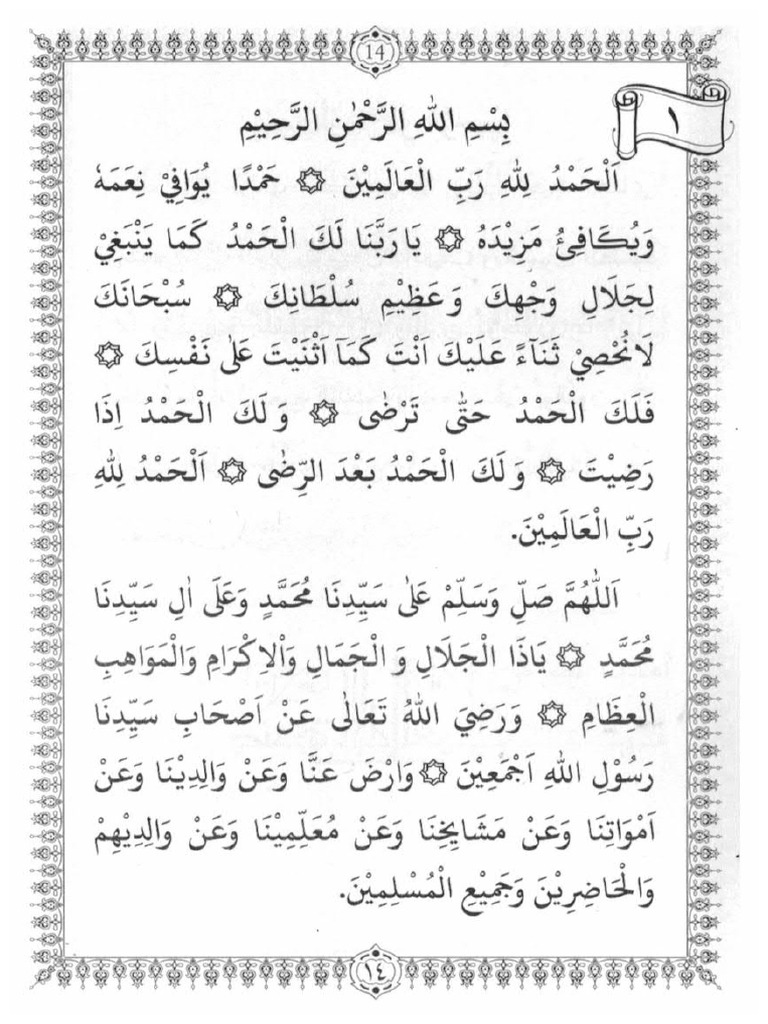 14
١
بِسْمِ اللهِ الرَّحْمٰنِ الرَّحِيْمِ
اَلْحَمْدُ لِلّٰهِ رَبِّ الْعَالَمِيْنَ ۞ حَمْدًا يُوَافِيْ نِعَمَهُ
وَيُكَافِئُ مَزِيْدَهُ ۞ يَارَبَّنَا لَكَ الْحَمْدُ كَمَا يَنْبَغِيْ
لِجَلَالِ وَجْهِكَ وَعَظِيْمِ سُلْطَانِكَ ۞ سُبْحَانَكَ
لَانُحْصِيْ ثَنَآءً عَلَيْكَ اَنْتَ كَمَآ اَثْنَيْتَ عَلٰى نَفْسِكَ ۞
فَلَكَ الْحَمْدُ حَتّٰى تَرْضٰى ۞ وَلَكَ الْحَمْدُ اِذَا
رَضِيْتَ ۞ وَلَكَ الْحَمْدُ بَعْدَ الرِّضٰى ۞ اَلْحَمْدُ لِلّٰهِ
رَبِّ الْعَالَمِيْنَ.
اَللّٰهُمَّ صَلِّ وَسَلِّمْ عَلٰى سَيِّدِنَا مُحَمَّدٍ وَعَلَى اٰلِ سَيِّدِنَا
مُحَمَّدٍ ۞ يَاذَا الْجَلَالِ وَالْجَمَالِ وَاْلاِكْرَامِ وَالْمَوَاهِبِ
الْعِظَامِ ۞ وَرَضِيَ اللهُ تَعَالٰى عَنْ اَصْحَابِ سَيِّدِنَا
رَسُوْلِ اللهِ اَجْمَعِيْنَ ۞ وَارْضَ عَنَّا وَعَنْ وَالِدِيْنَا وَعَنْ
اَمْوَاتِنَا وَعَنْ مَشَايِخِنَا وَعَنْ مُعَلِّمِيْنَا وَعَنْ وَالِدِيْهِمْ
وَالْحَاضِرِيْنَ وَجَمِيْعِ الْمُسْلِمِيْنَ.
١٤